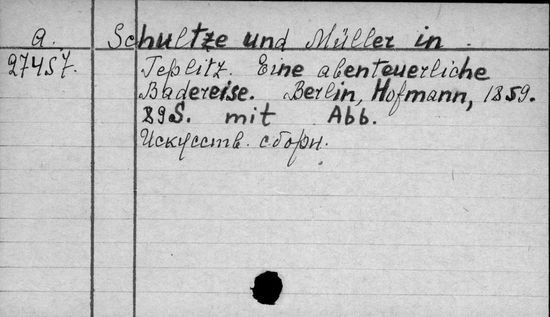 a.
27457.
Schultze und Müller in
Teplitz. Eine abenteuerliche
Badereise. Berlin, Hofmann, 1859.
89S. mit Abb.
Искусств. сборн.